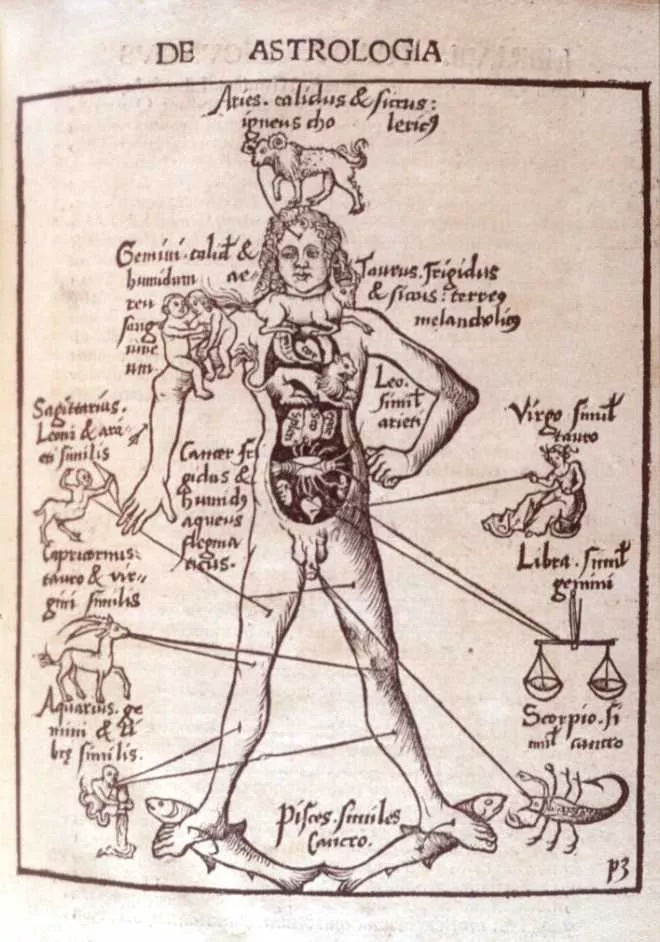 DE ASTROLOGIA
Aries. calidus & siccus:
igneus cho lericꝰ
Gemini. calid⁹ &
humidum ae-
reu
sang
uine
um
Taurus. frigidus
& siccus: terreꝰ
melancholicꝰ
Leo.
simil
arieti
Sagittarius.
Leoni & ari
eti similis
Cancer fri
gidus &
humidꝰ
aqueus
flegma
ticus.
Virgo simil
tauro
Capricornus:
tauro & vir-
gini similis
Libra. simil
gemini
Aquarius. ge
mini & li
brę similis.
Scorpio. si
mil cancro
Pisces. similes
Cancro.
p3